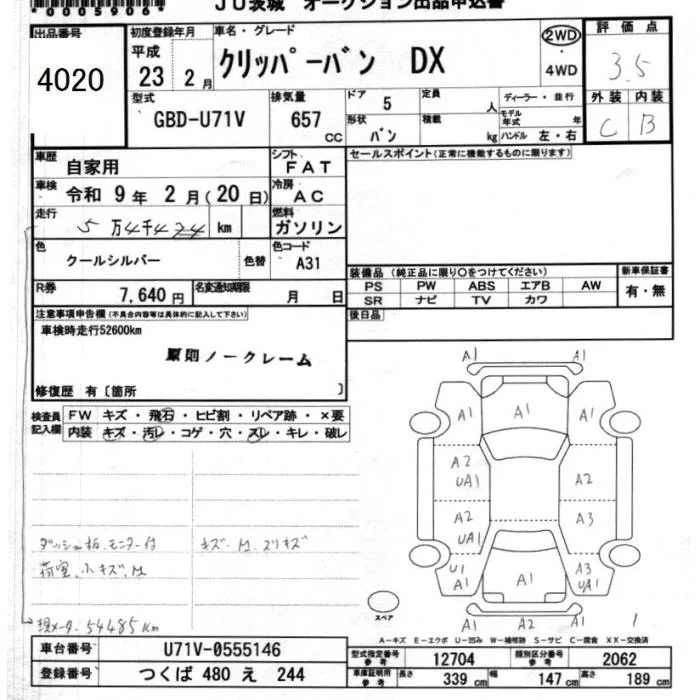 *0005906*
JU茨城 オークション出品申込書
出品番号
4020
初度登録年月
平成
23 2月
車名・グレード
クリッパーバン DX
2WD
・
4WD
評価点
3.5
外装 内装
C B
型式
GBD-U71V
排気量
657
cc
ドア 5
定員 人
ディーラー・並行
形状 バン
積載 kg
モデル年式 年
ハンドル 左・右
車歴
自家用
シフト
FAT
セールスポイント(正常に機能するものに限ります)
車検 令和 9年 2月(20日)
冷房
AC
走行
5万4千424 km
燃料
ガソリン
色
クールシルバー
色替
色コード
A31
装備品(純正品に限り○をつけてください)
新車保証書
PS PW ABS エアB AW
有・無
SR ナビ TV カワ
R券
7,640円
名変通知期限
月 日
後日品
注意事項申告欄(不具合内容等は具体的に記入して下さい)
車検時走行52600km
原則ノークレーム
修復歴 有〔箇所 〕
検査員記入欄
FW キズ・飛石・ヒビ割・リペア跡・×要
内装 キズ・汚レ・コゲ・穴・スレ・キレ・破レ
ダッシュ板、モニター付
キズ・M、スリキズ
荷室、小キズ、M
現メーター 54485Km
A1 A1
A1 A1 A1
A2
UA1
A2
A2
UA1
A3
U1
A1
A1
A3
UA1
A1 A2 A1
スペア
A-キズ E-エクボ U-凹み W-補修跡 S-サビ C-腐食 XX-交換済
車台番号
U71V-0555146
登録番号
つくば 480 え 244
型式指定番号
参考
12704
類別区分番号
参考
2062
車庫証明用
参考
長さ 339 cm
幅 147 cm
高さ 189 cm